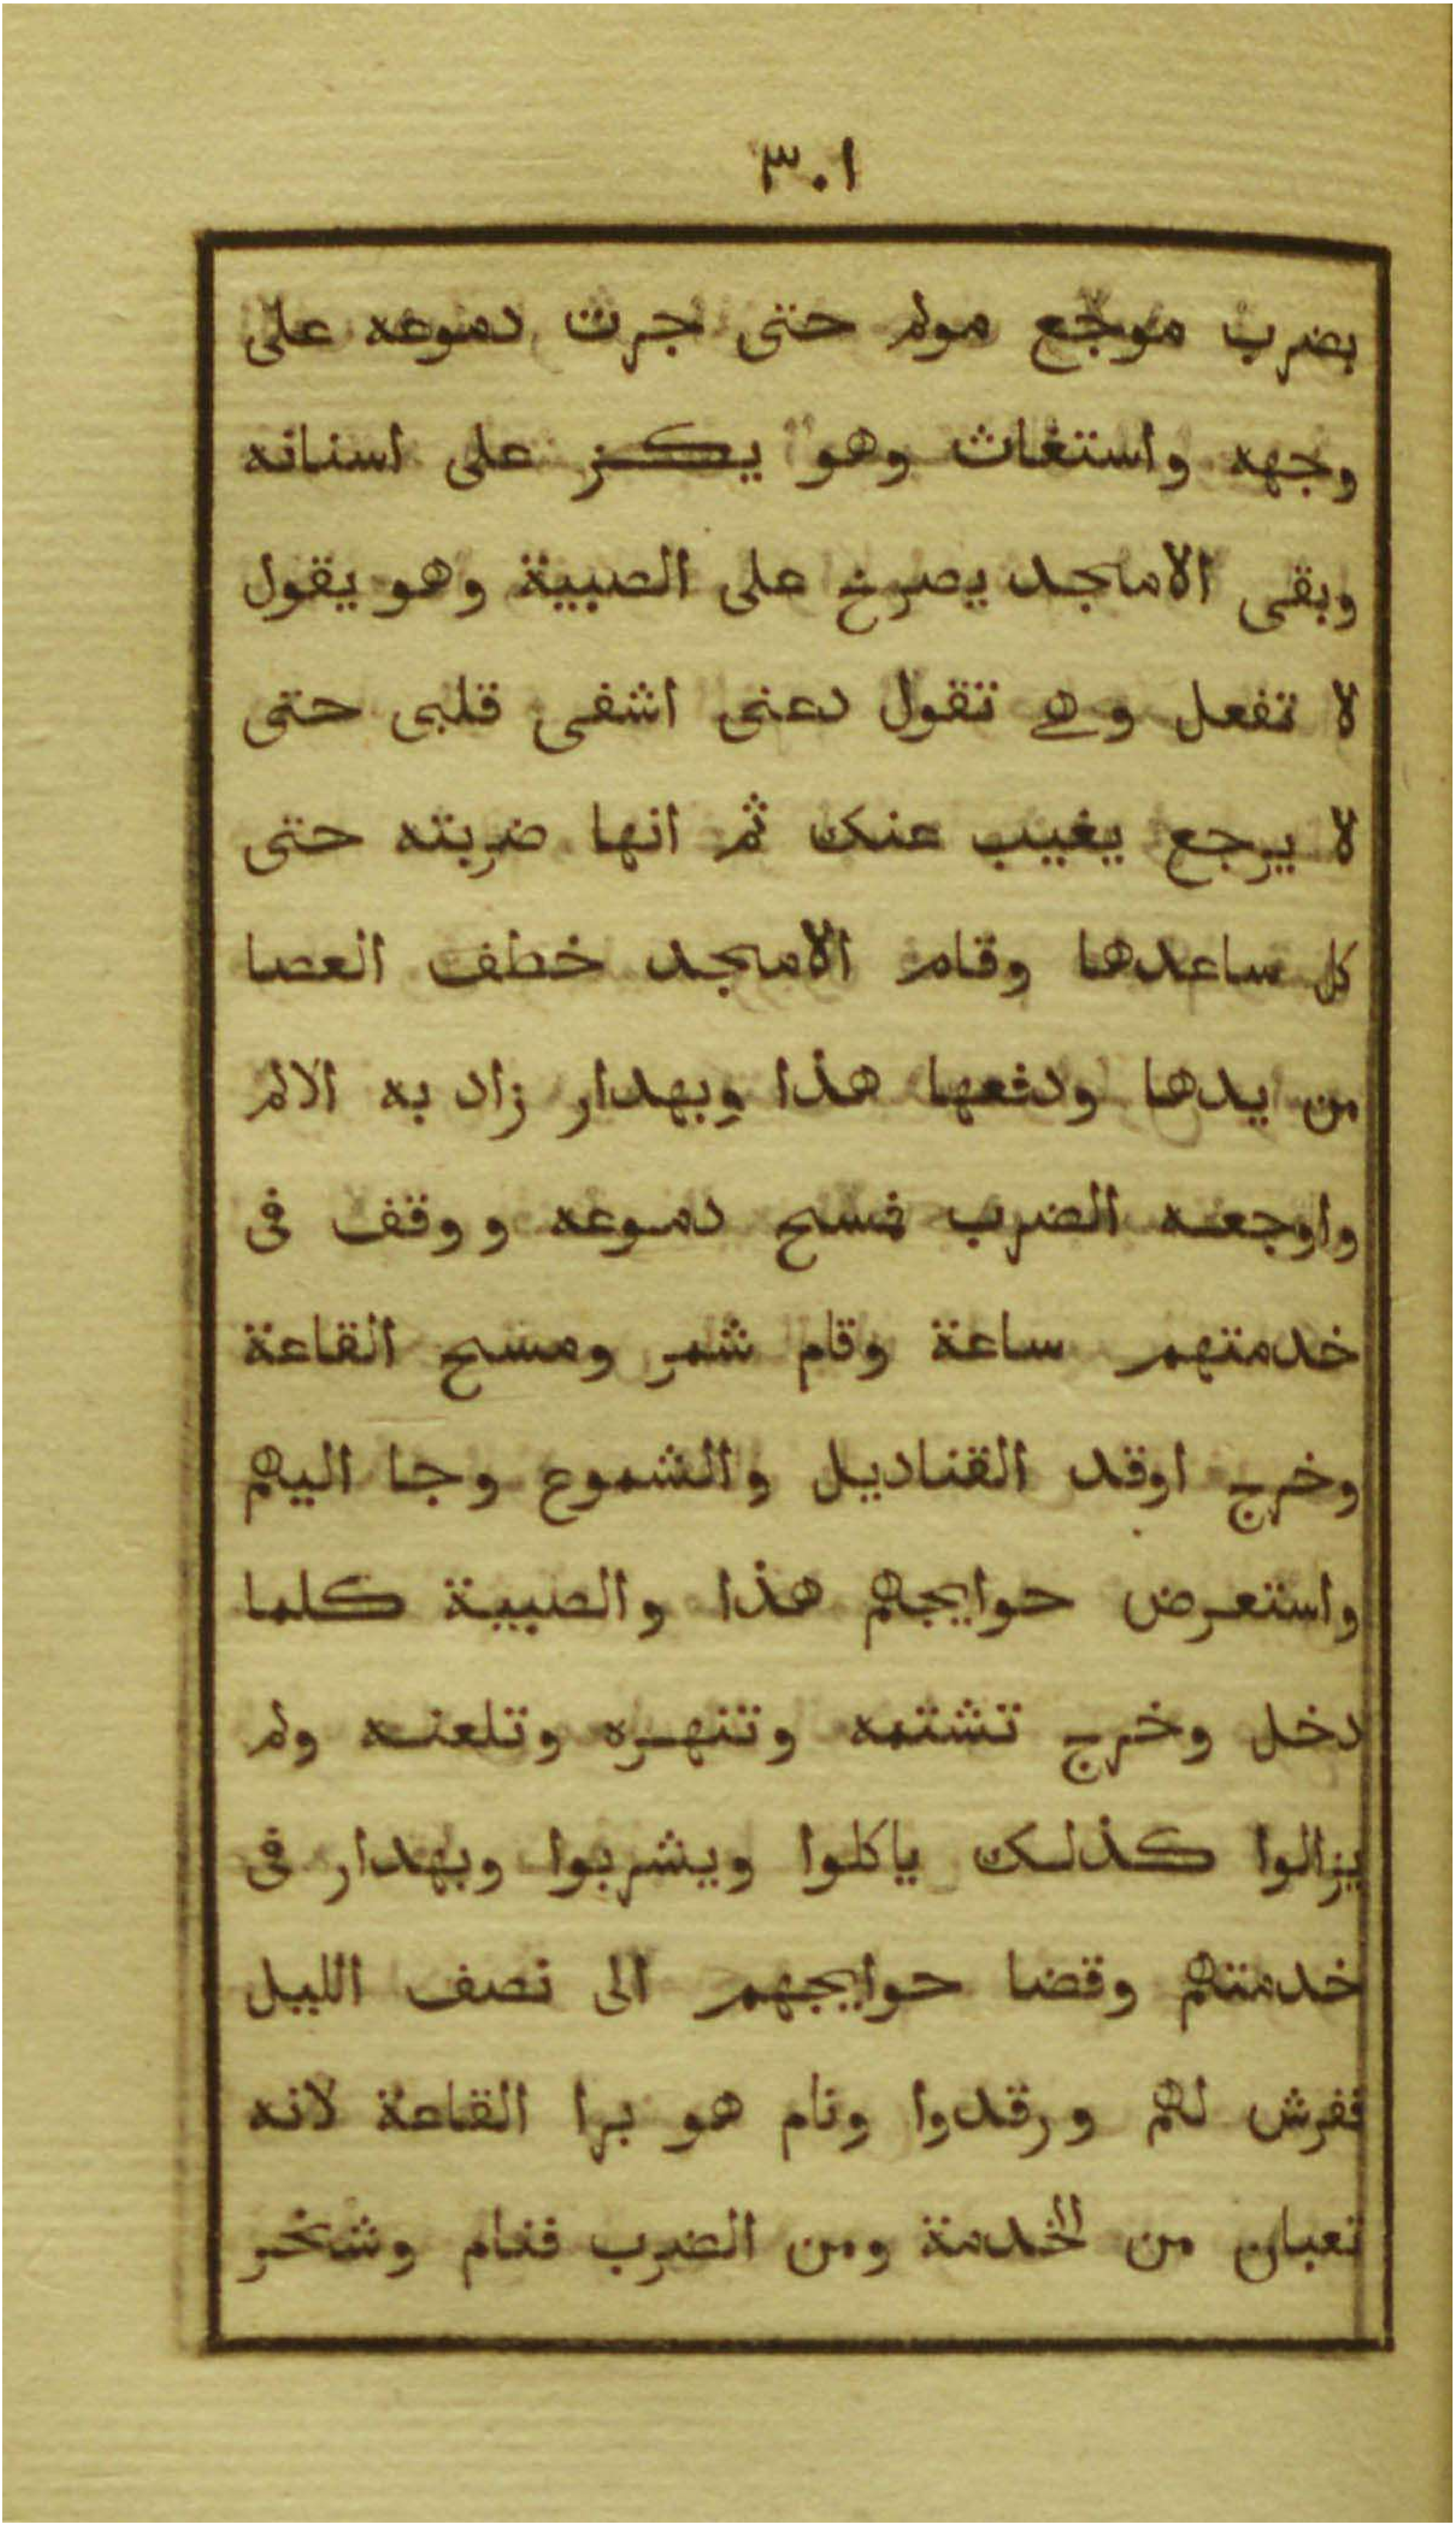 ٣٠١
بضرب موجع مولم حتى جرت دموعه على
وجهه واستغاث وهو يكز على اسنانه
وبقى الامجد يصرخ على الصبية وهو يقول
لا تفعل وهى تقول دعنى اشفى قلبى حتى
لا يرجع يغيب عنك ثم انها ضربته حتى
كل ساعدها وقام الامجد خطف العصا
من يدها ودفعها هذا وبهدار زاد به الالم
واوجعه الضرب فمسح دموعه ووقف فى
خدمتهم ساعة وقام شمر ومسح القاعة
وخرج اوقد القناديل والشموع وجا اليهم
واستعرض حوايجهم هذا والصبية كلما
دخل وخرج تشتمه وتنهره وتلعنه ولم
يزالوا كذلك ياكلوا ويشربوا وبهدار فى
خدمتهم وقضا حوايجهم الى نصف الليل
ففرش لهم ورقدوا ونام هو برا القاعة لانه
تعبان من الخدمة ومن الضرب فنام وشخر